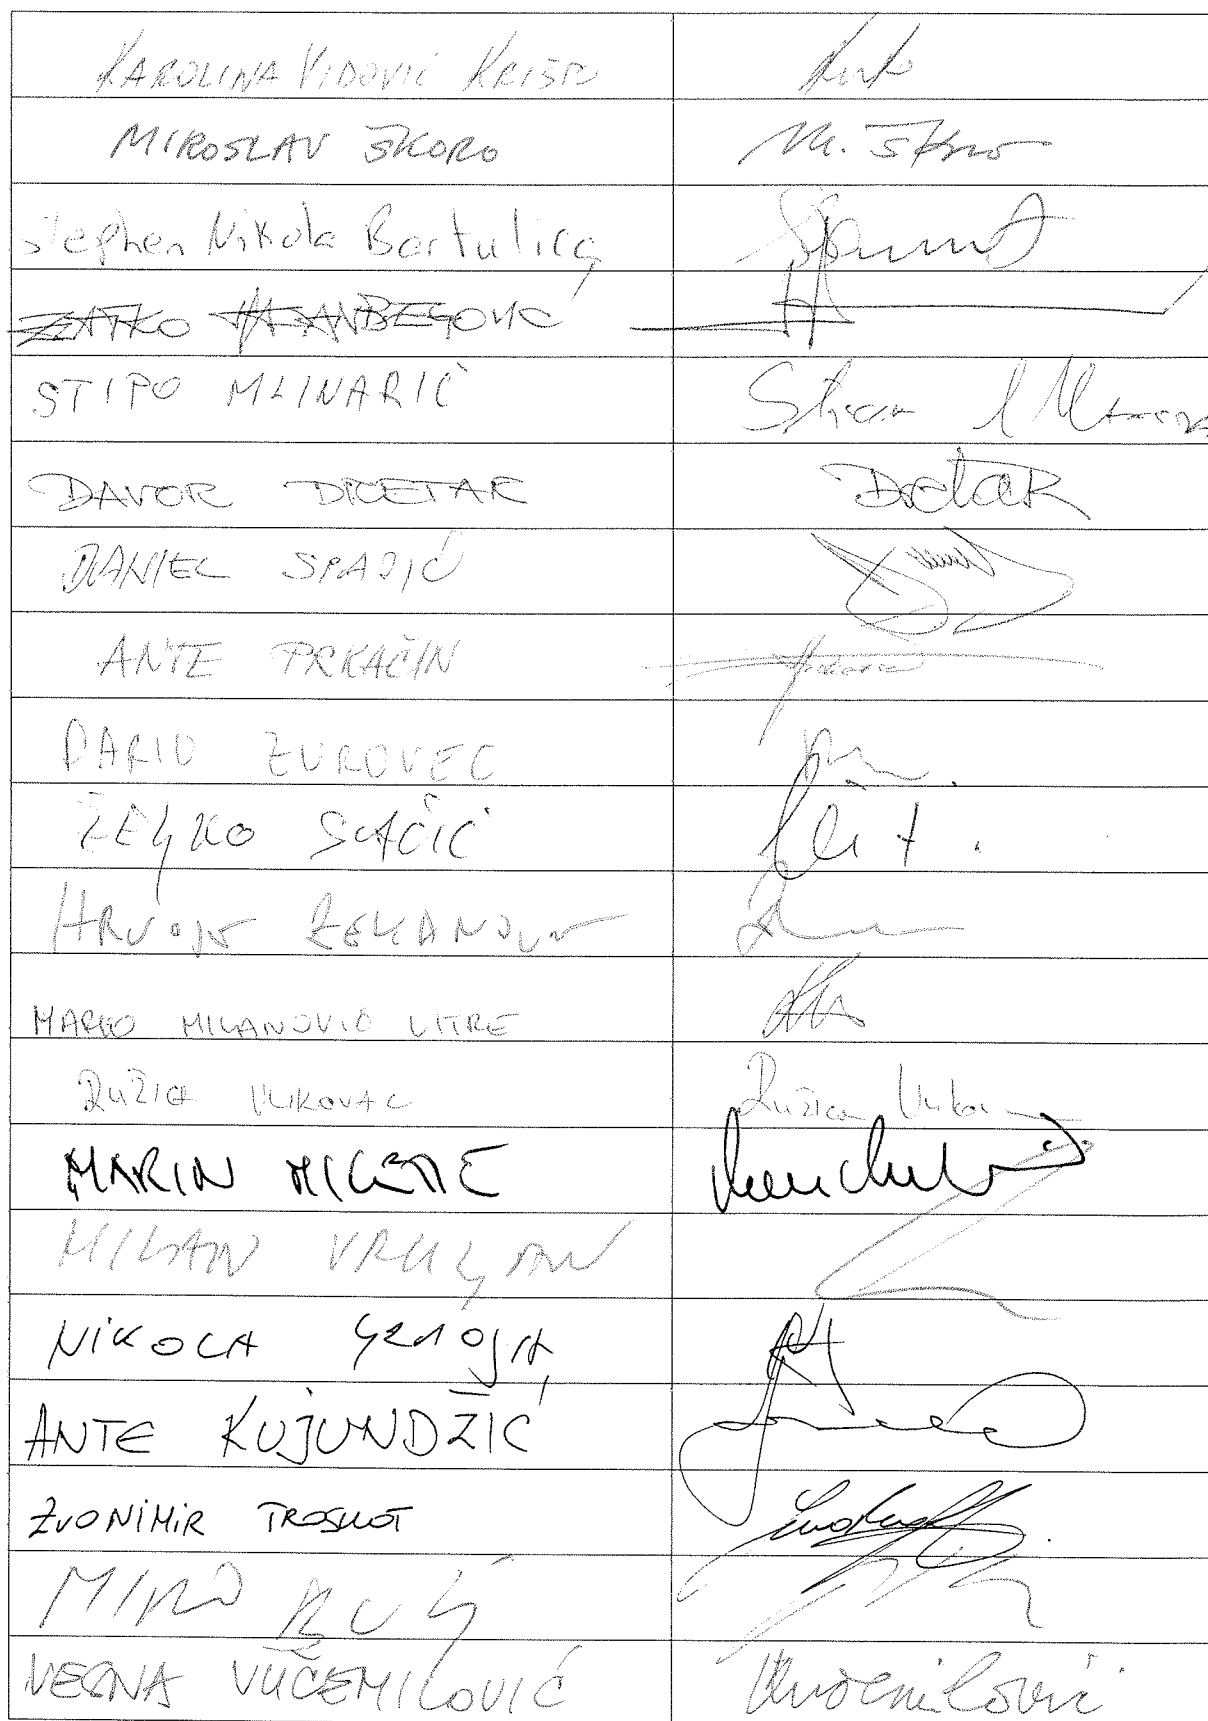 KAROLINA VIDOVIĆ KRIŠTO
MIROSLAV ŠKORO M. Škoro
Stephen Nikola Bartulica
ZLATKO HASANBEGOVIĆ
STIPO MLINARIĆ
DAVOR DRETAR Dretar
DANIEL SPAJIĆ
ANTE PRKAČIN
DARIO ZUROVEC
ŽELJKO SAČIĆ
HRVOJE ZEKANOVIĆ
MARKO MILANOVIĆ LITRE
RUŽICA VUKOVAC Ružica Vukovac
MARIN MILETIĆ
MILAN VRKLJAN
NIKOLA GRMOJA
ANTE KUJUNDŽIĆ
ZVONIMIR TROSKOT
MIRO BULJ
VESNA VUČEMILOVIĆ Vučemilović